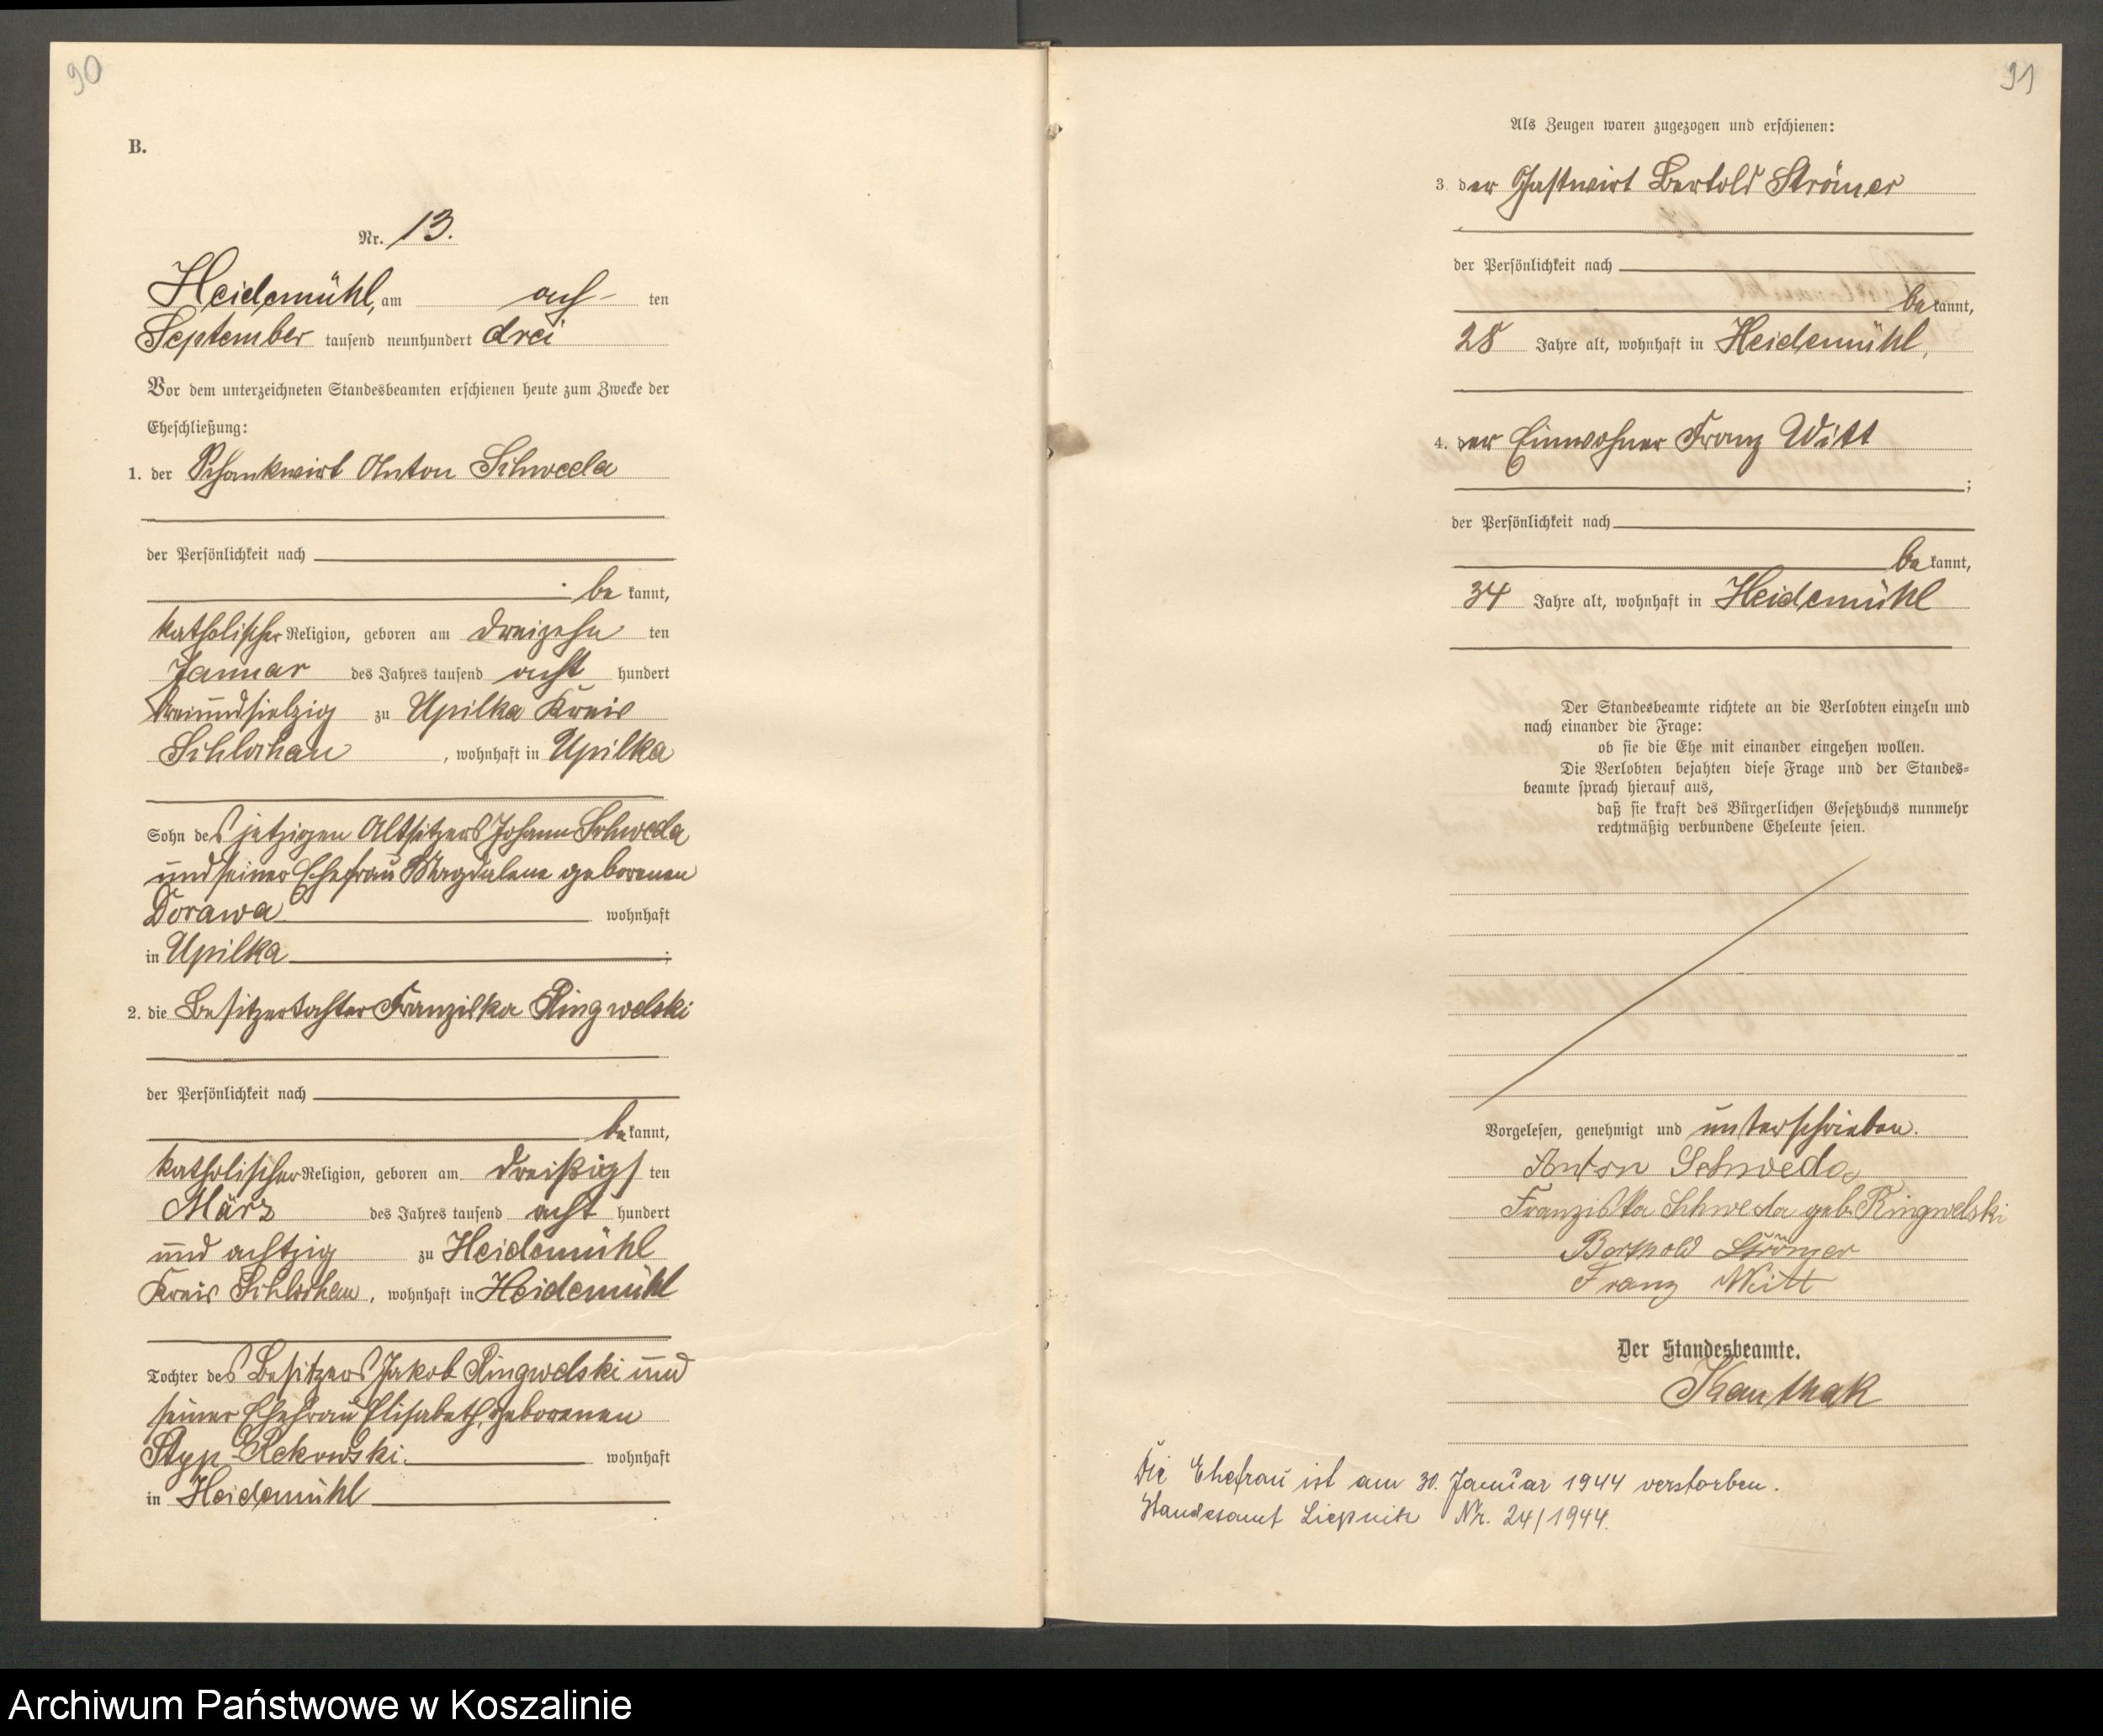 90
B.
Nr. 13.
Heidemühl, am ach- ten
September tausend neunhundert drei
Vor dem unterzeichneten Standesbeamten erschienen heute zum Zwecke der
Eheschließung:
1. der Schankwirt Anton Schweda
der Persönlichkeit nach
be kannt,
katholischer Religion, geboren am dreizehn ten
Januar des Jahres tausend acht hundert
dreiundsiebzig zu Upilka Kreis
Schlochau, wohnhaft in Upilka
Sohn des jetzigen Altsitzers Johann Schweda
und seiner Ehefrau Magdalena geborenen
Dorawa wohnhaft
in Upilka ;
2. die Besitzertochter Franziska Ringwelski
der Persönlichkeit nach
be kannt,
katholischer Religion, geboren am dreißigs ten
März des Jahres tausend acht hundert
und achtzig zu Heidemühl
Kreis Schlochau, wohnhaft in Heidemühl
Tochter des Besitzers Jakob Ringwelski und
seiner Ehefrau Elisabeth, geborenen
Styp-Rekowski. wohnhaft
in Heidemühl
91
Als Zeugen waren zugezogen und erschienen:
3. der Gastwirt Bertold Strömer
der Persönlichkeit nach
be kannt,
28 Jahre alt, wohnhaft in Heidemühl,
4. der Einwohner Franz Witt
;
der Persönlichkeit nach
be kannt,
34 Jahre alt, wohnhaft in Heidemühl
Der Standesbeamte richtete an die Verlobten einzeln und
nach einander die Frage:
ob sie die Ehe mit einander eingehen wollen.
Die Verlobten bejahten diese Frage und der Standes=
beamte sprach hierauf aus,
daß sie kraft des Bürgerlichen Gesetzbuchs nunmehr
rechtmäßig verbundene Eheleute seien.
Vorgelesen, genehmigt und unterschrieben.
Anton Schweda
Franziska Schweda geb. Ringwelski
Berthold Strömer
Franz Witt
Der Standesbeamte.
Kanthak
Die Ehefrau ist am 30. Januar 1944 verstorben.
Standesamt Liepnitz Nr. 24/1944.
Archiwum Państwowe w Koszalinie